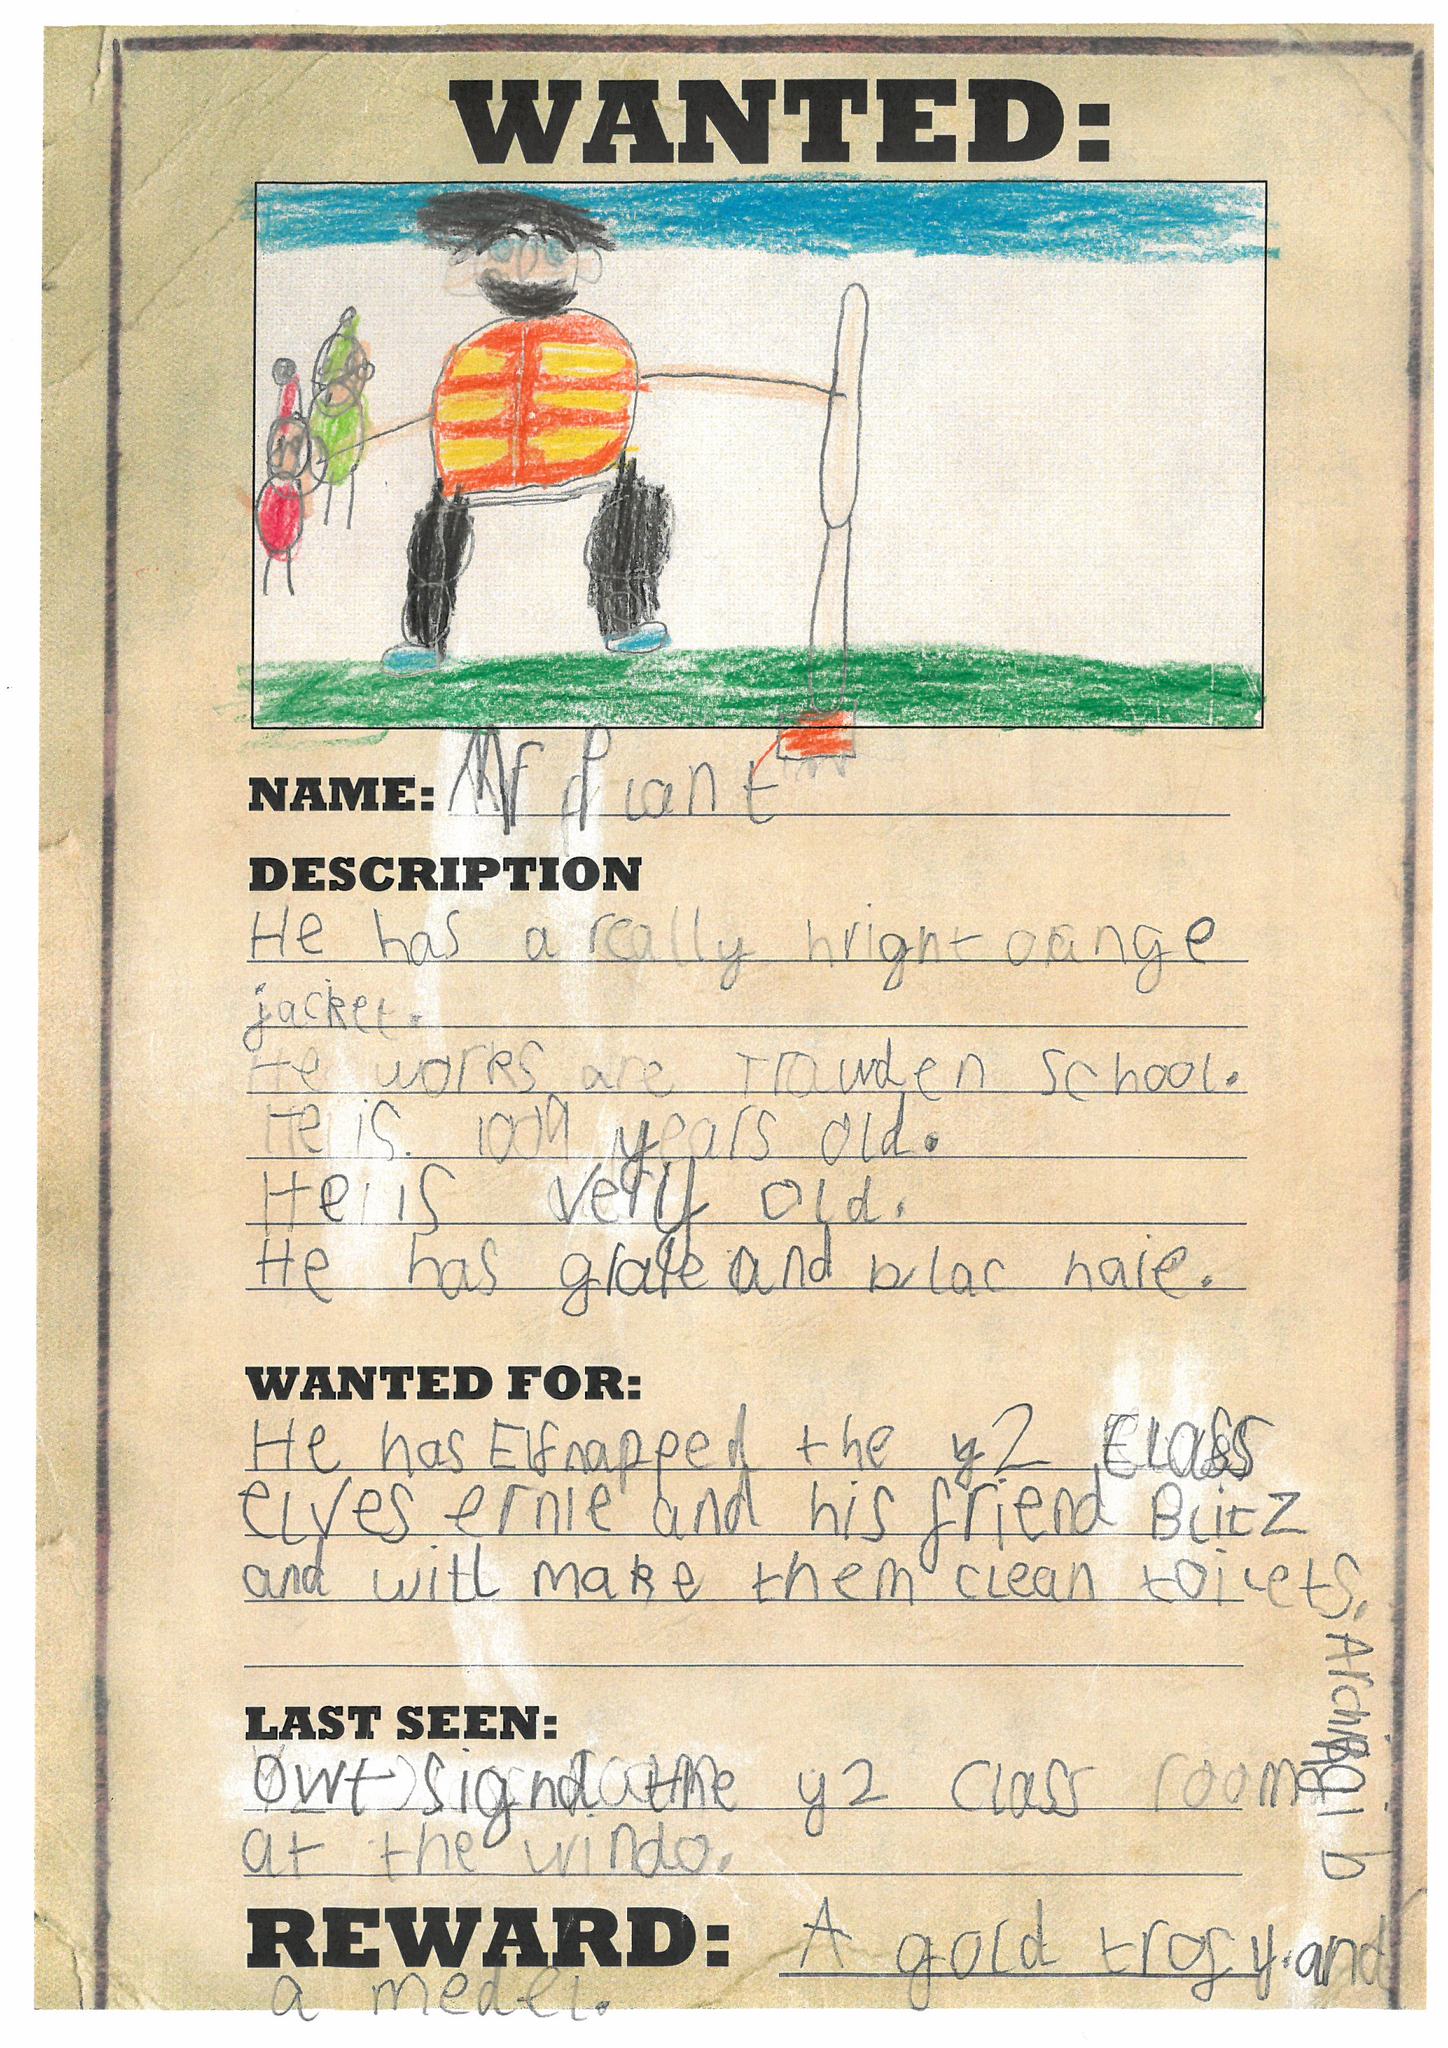 WANTED:
NAME: Mr
DESCRIPTION
He has a really hrignt orange
jacket.
He works are Trawden school.
He is years old.
He is very old.
He has and blac haie.
WANTED FOR:
He has Elfnapped the y2 Class
elves ernie and his friend Blitz
and will make them clean toilets.
LAST SEEN:
owt signd the y2 class room
at the windo.
REWARD: A gold trofy. and
a medel.